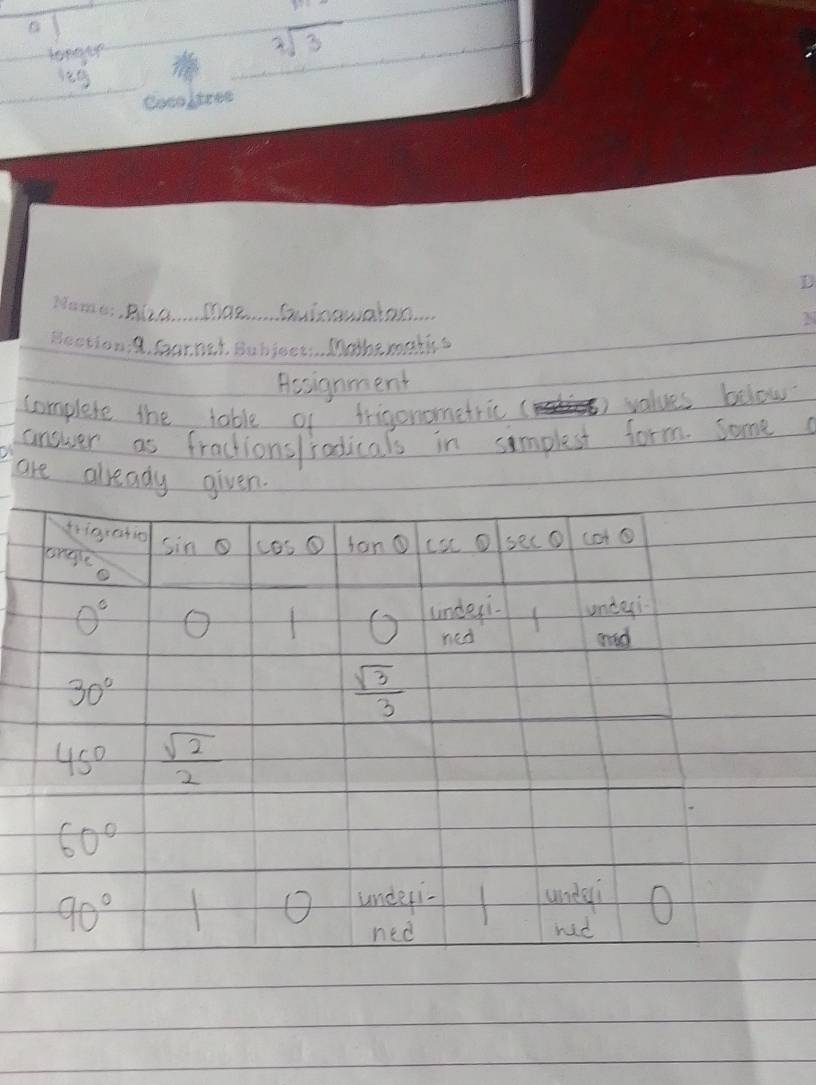 longer
leg
Cocotree
7√3
Name: Mae Guinawatan
Section: 9. Garnet. Subject: Mathematics
Assignment
Complete the table of trigonometric values below.
answer as fractions/radicals in simplest form. Some
are already given.
trigratio sin θ cos θ tan θ csc θ sec θ cot θ
angle θ
0° 0 1 0 undefi-ned 1 undefi-ned
30° √3/3
45° √2/2
60°
90° 1 0 undefi-ned 1 undefi ned 0